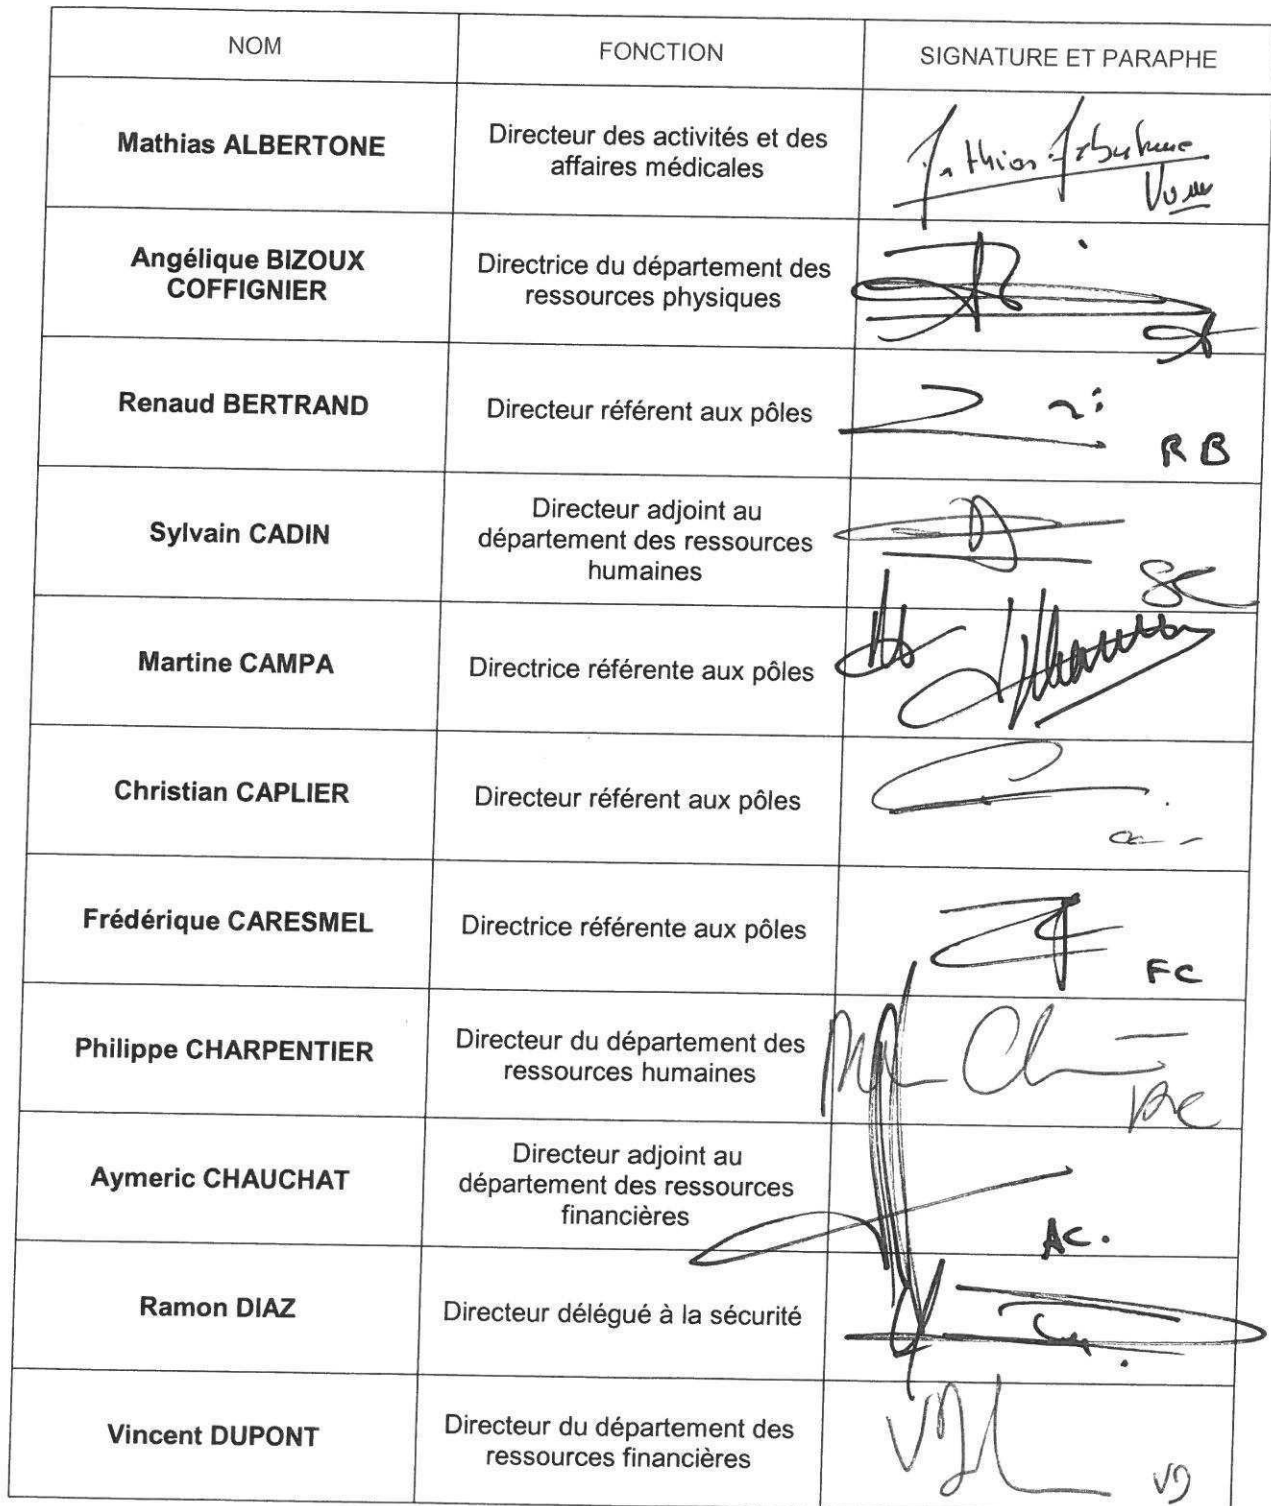 NOM FONCTION SIGNATURE ET PARAPHE
Mathias ALBERTONE
Directeur des activités et des
affaires médicales
Angélique BIZOUX
COFFIGNIER
Directrice du département des
ressources physiques
Renaud BERTRAND
Directeur référent aux pôles
RB
Sylvain CADIN
Directeur adjoint au
département des ressources
humaines
SC
Martine CAMPA
Directrice référente aux pôles
Christian CAPLIER
Directeur référent aux pôles
Frédérique CARESMEL
Directrice référente aux pôles
FC
Philippe CHARPENTIER
Directeur du département des
ressources humaines
Aymeric CHAUCHAT
Directeur adjoint au
département des ressources
financières
AC.
Ramon DIAZ
Directeur délégué à la sécurité
Vincent DUPONT
Directeur du département des
ressources financières
VD